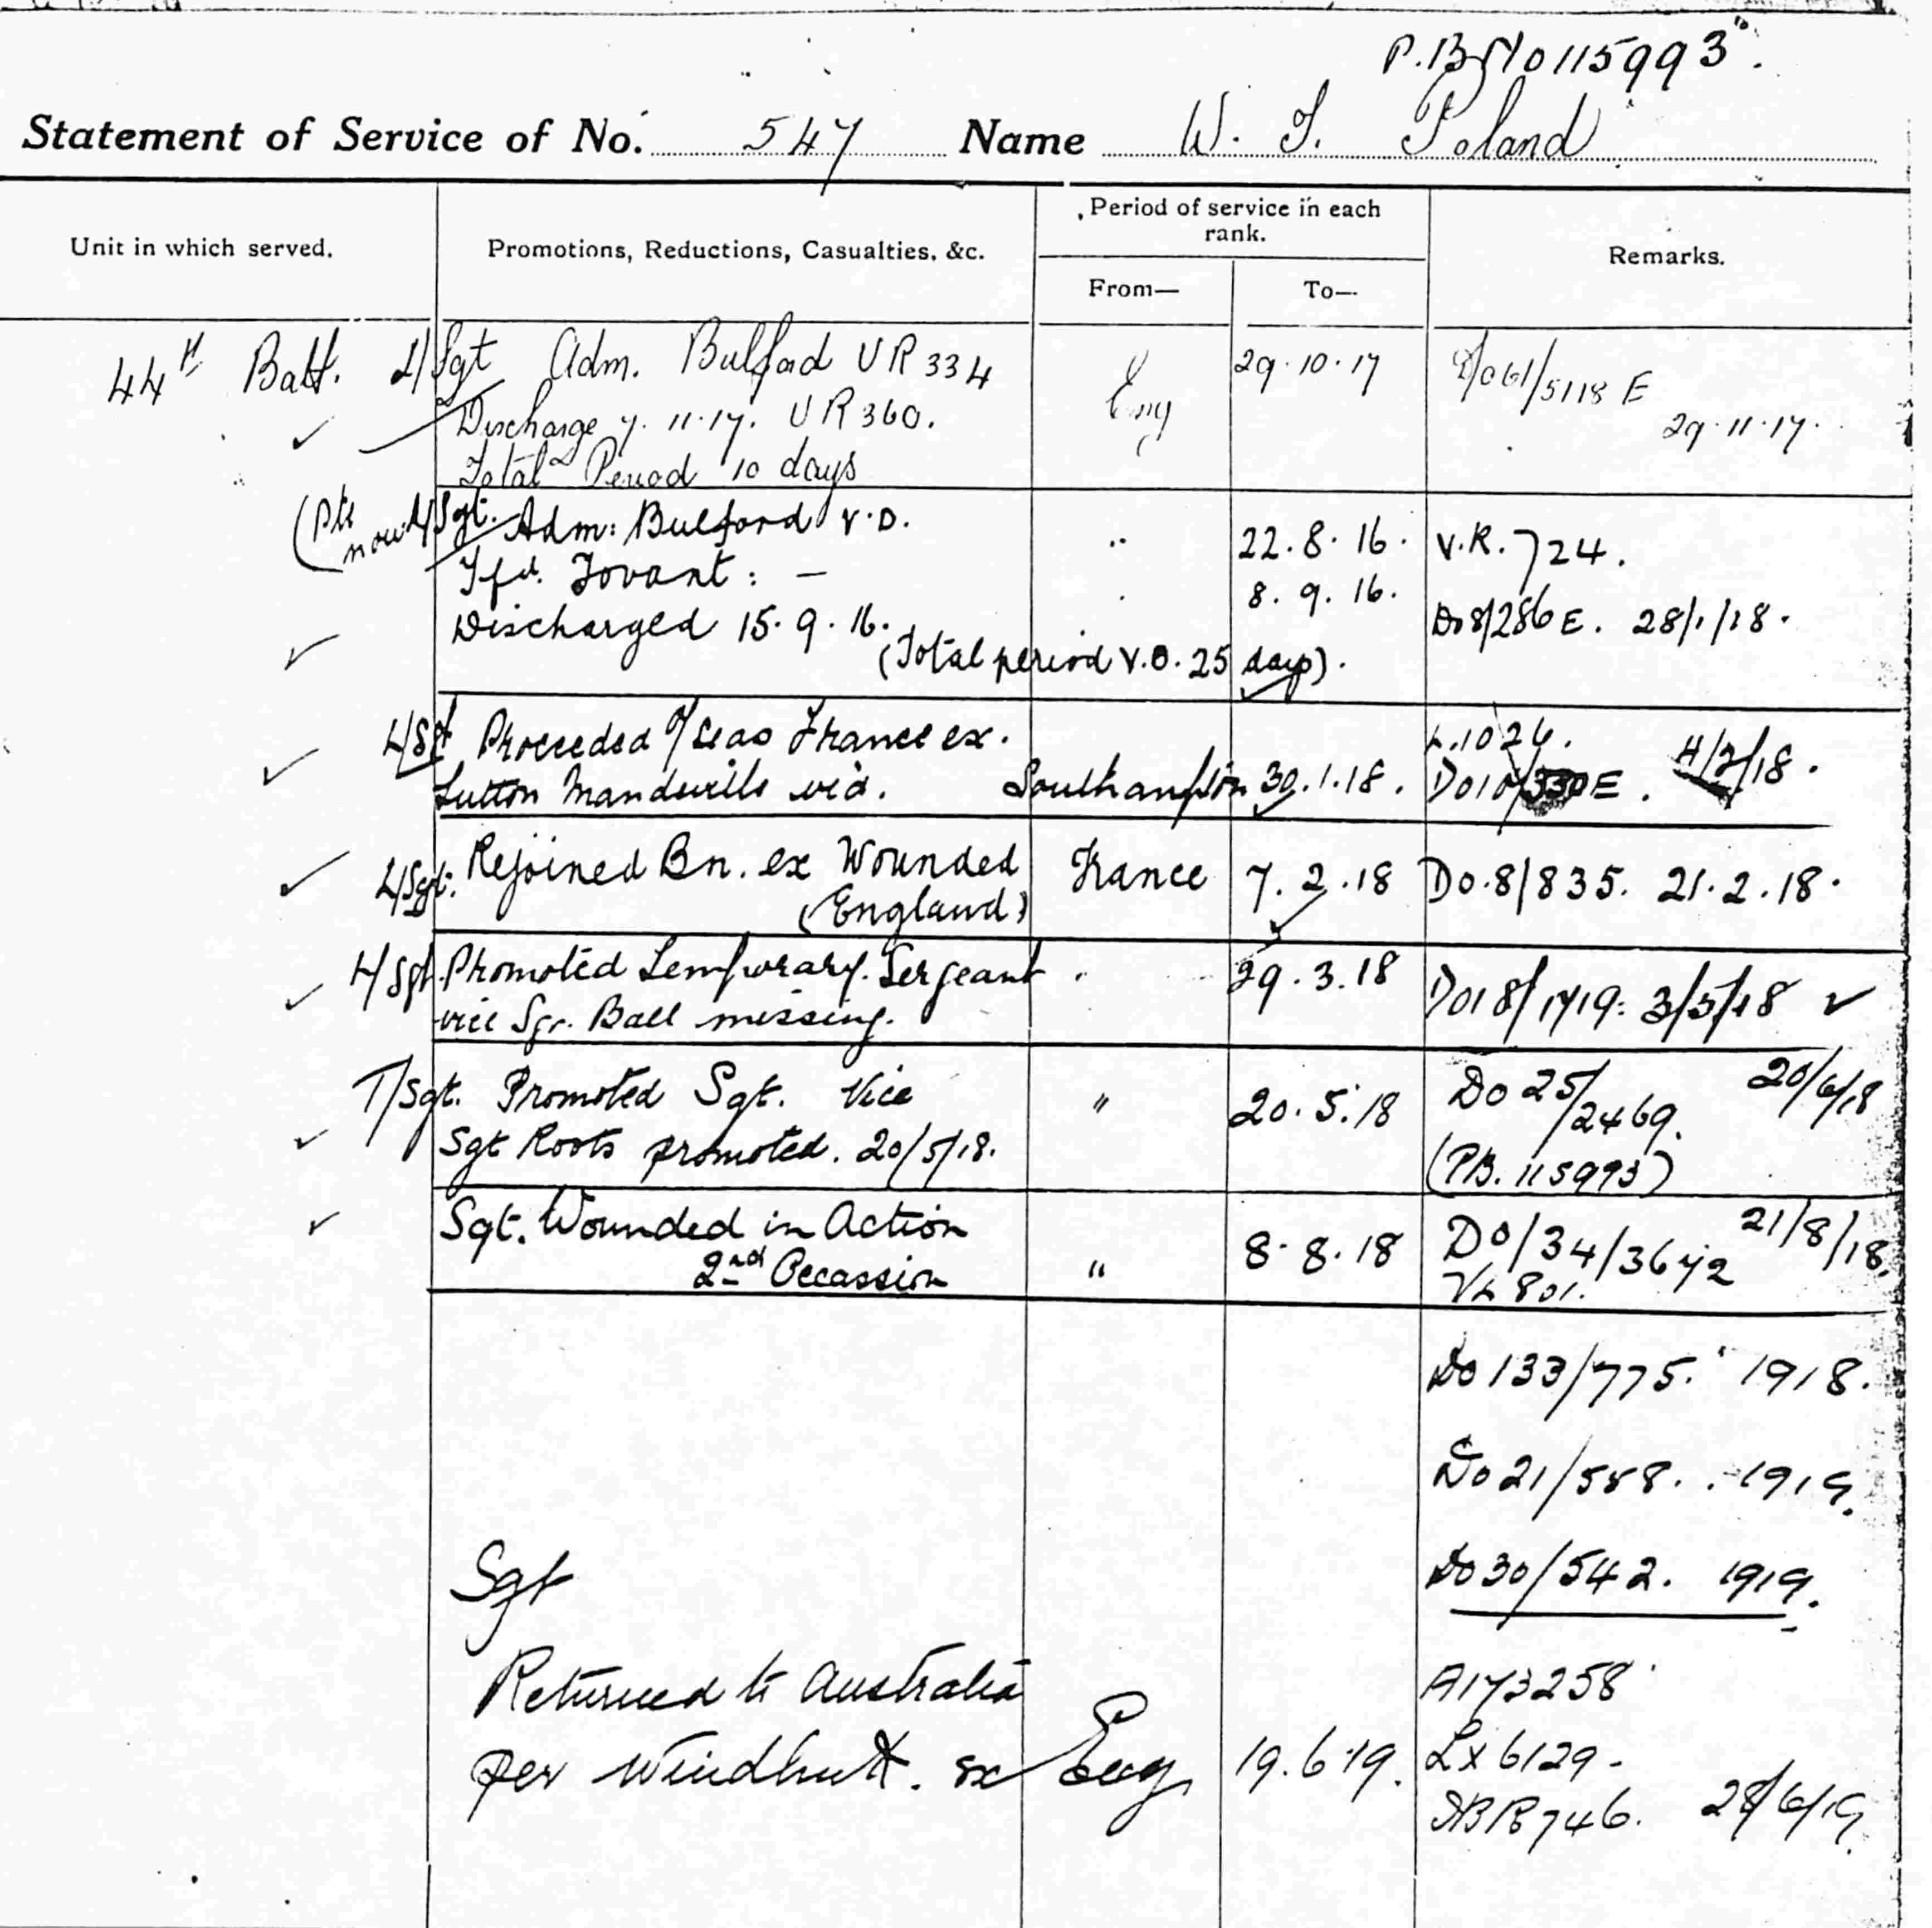 P.B No 115993
Statement of Service of No. 547 Name W. F. Poland
Unit in which served.
Promotions, Reductions, Casualties, &c.
Period of service in each rank.
From—
To—
Remarks.
44th Batt. L/Sgt Adm. Bulford VR 334 Eng 29.10.17 D/o 61/5118 E
Discharge 7.11.17. VR 360. 29.11.17.
Total Period 10 days
(Pte now L/Sgt. Adm: Bulford V.D. " 22.8.16. V.R. 724.
Tfd. Tovant: — 8.9.16.
Discharged 15.9.16. Do 8/286 E. 28/1/18.
(Total period V.D. 25 days).
L/Sgt Proceeded O/seas France ex. L.1026.
Sutton Mandeville via. Southampton 30.1.18. Do 10/330 E. 4/2/18.
L/Sgt. Rejoined Bn. ex Wounded France 7.2.18 Do.8/835. 21.2.18.
(England)
L/Sgt. Promoted Temporary. Sergeant 29.3.18 Do 18/1719: 3/5/18
vice Sgr. Ball missing.
T/Sgt. Promoted Sgt. Vice " 20.5.18 Do 25/2469. 20/6/18
Sgt Roots promoted. 20/5/18. (PB. 115993)
Sgt. Wounded in Action " 8.8.18 Do/34/3672 21/8/18.
2nd Occassion 801.
Do 133/775. 1918.
Do 21/588. 1919.
Do 30/542. 1919.
Sgt
Returned to Australia A173258
per Windhuk. ex Eng 19.6.19. Lx 6129.
746. 28/6/19.